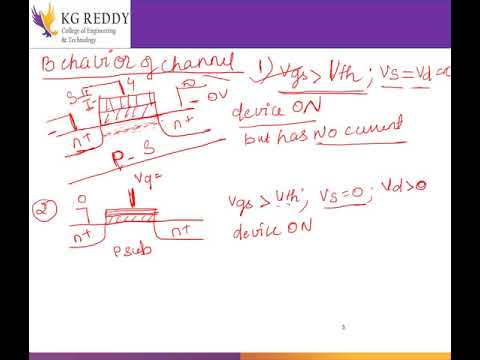 KG REDDY
College of Engineering
& Technology
Behavior of channel
1) Vgs > Vth ; Vs = Vd = 0
device ON
but has No current
S
G
D
0V
n+
n+
P - S
2
Vg =
0
n+
n+
Psub
Vgs > Vth ; Vs = 0 ; Vd > 0
device ON
3